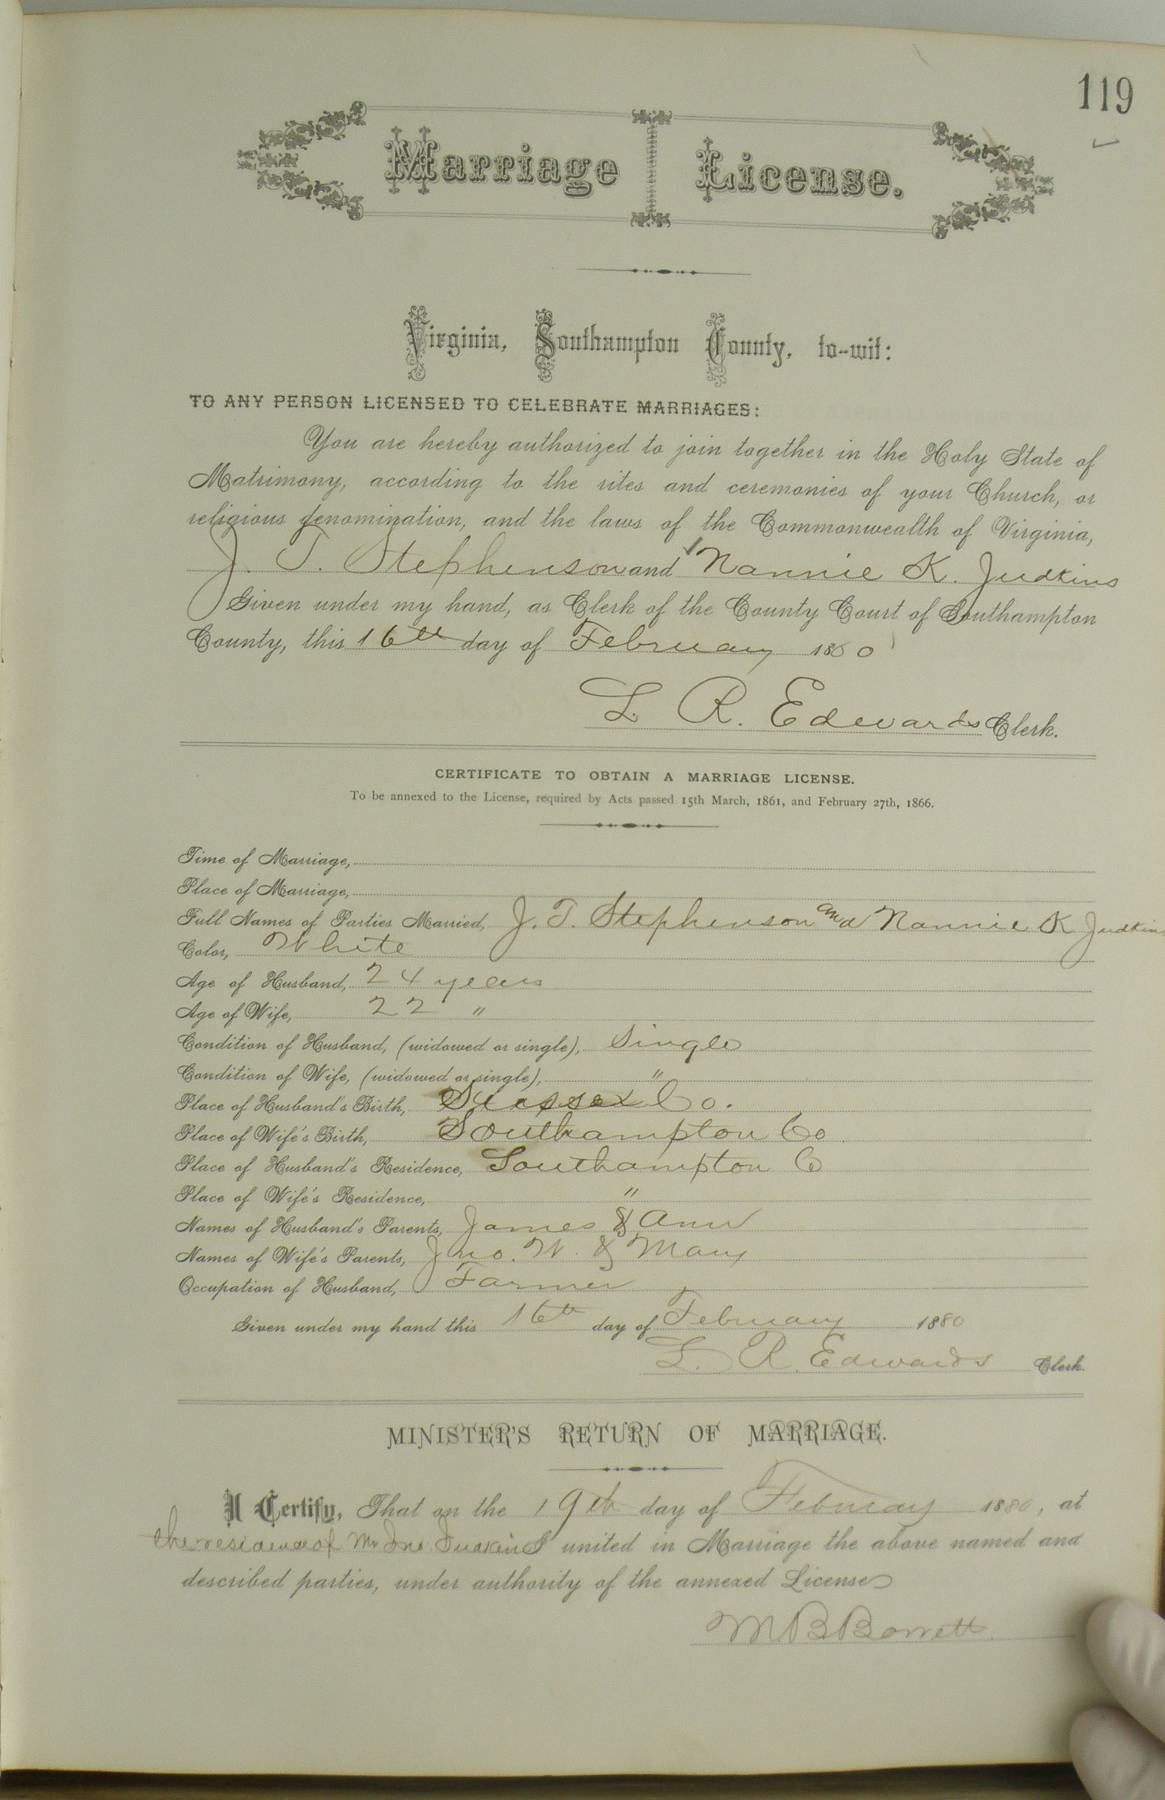 119
Marriage License.
Virginia, Southampton County, to-wit:
TO ANY PERSON LICENSED TO CELEBRATE MARRIAGES:
You are hereby authorized to join together in the Holy State of
Matrimony, according to the rites and ceremonies of your Church, or
religious denomination, and the laws of the Commonwealth of Virginia,
J. T. Stephenson and Nannie K. Judkins
Given under my hand, as Clerk of the County Court of Southampton
County, this 16th day of February 1880
L. R. Edwards Clerk.
CERTIFICATE TO OBTAIN A MARRIAGE LICENSE.
To be annexed to the License, required by Acts passed 15th March, 1861, and February 27th, 1866.
Time of Marriage,
Place of Marriage,
Full Names of Parties Married, J. T. Stephenson and Nannie K Judkins
Color, White
Age of Husband, 24 years
Age of Wife, 22 "
Condition of Husband, (widowed or single), Single
Condition of Wife, (widowed or single), "
Place of Husband's Birth, Sussex Co.
Place of Wife's Birth, Southampton Co
Place of Husband's Residence, Southampton Co
Place of Wife's Residence, "
Names of Husband's Parents, James & Ann
Names of Wife's Parents, Jno. W. & Mary
Occupation of Husband, Farmer
Given under my hand this 16th day of February 1880
L. R. Edwards Clerk.
MINISTER'S RETURN OF MARRIAGE.
I Certify, That on the 19th day of February 1880, at
the residence of Mr Jno Judkins I united in Marriage the above named and
described parties, under authority of the annexed License
M B Barrett